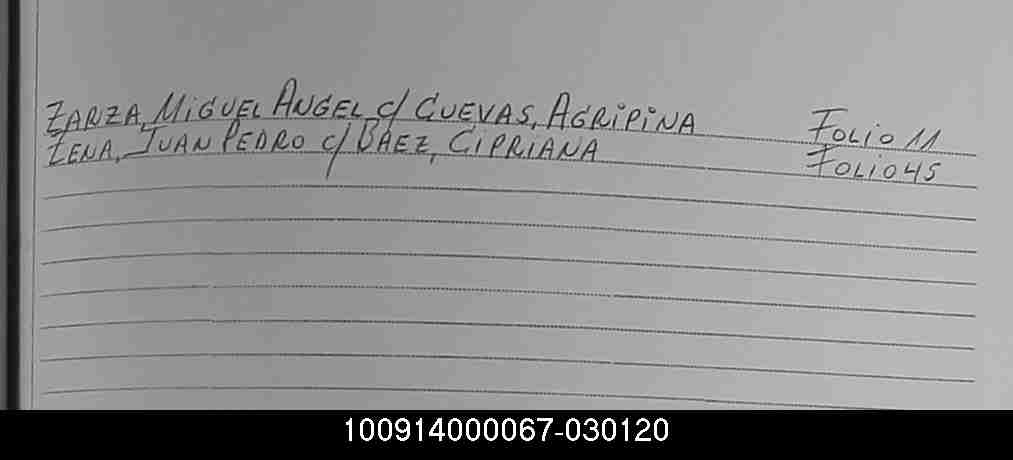 ZARZA, MIGUEL ANGEL c/ CUEVAS, AGRIPINA FOLIO 11
ZENA, JUAN PEDRO c/ BAEZ, CIPRIANA FOLIO 45
100914000067-030120